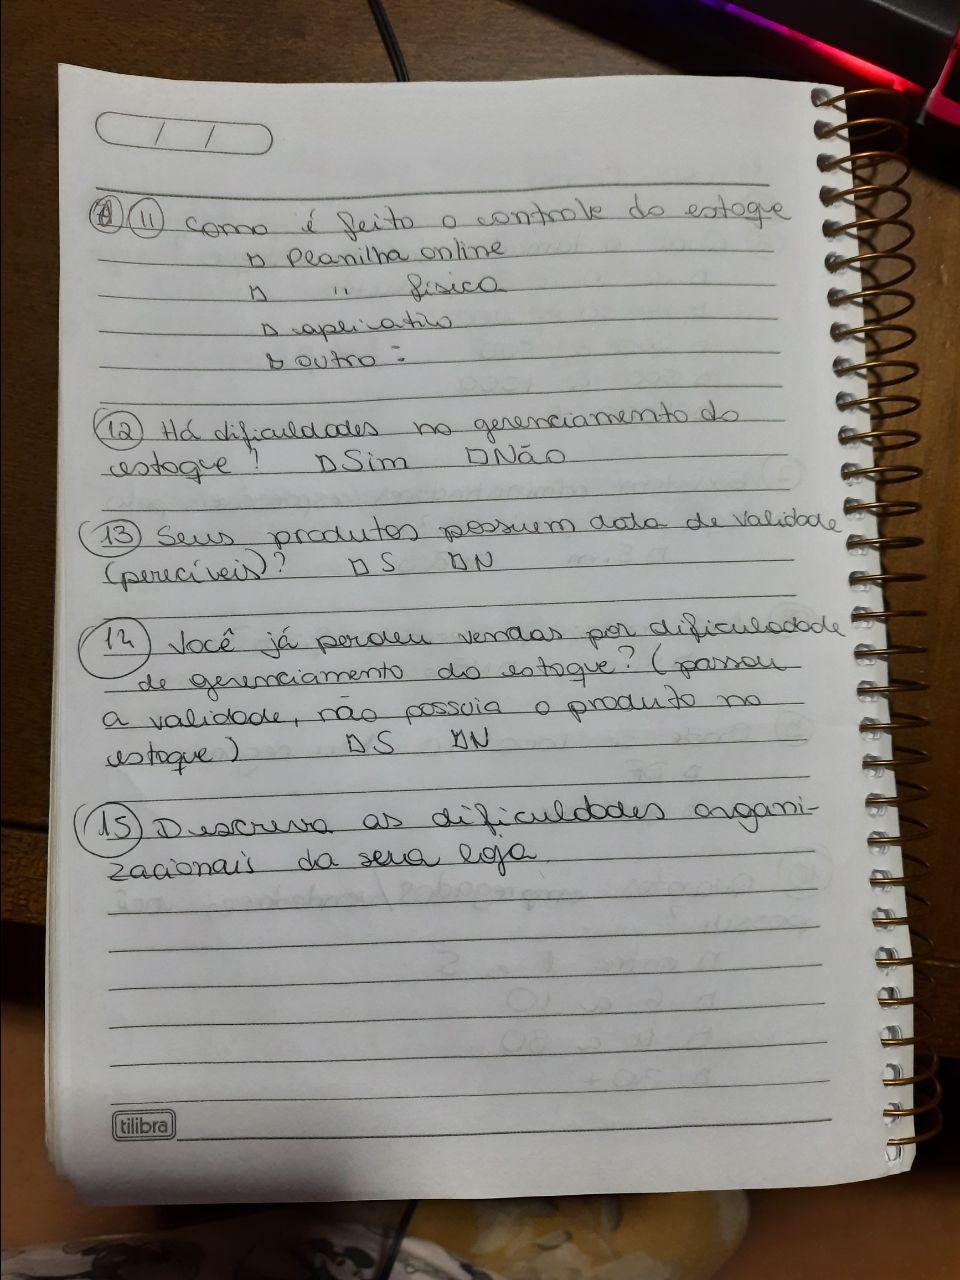 / /
11 Como é feito o controle do estoque
□ Planilha online
□ " física
□ aplicativo
□ outro:
12 Há dificuldades no gerenciamento do
estoque? □ Sim □ Não
13 Seus produtos possuem data de validade
(perecíveis)? □ S □ N
14 Você já perdeu vendas por dificuldade
de gerenciamento do estoque? (passou
a validade, não possuia o produto no
estoque) □ S □ N
15 Descreva as dificuldades organi-
zacionais da seua loja
tilibra